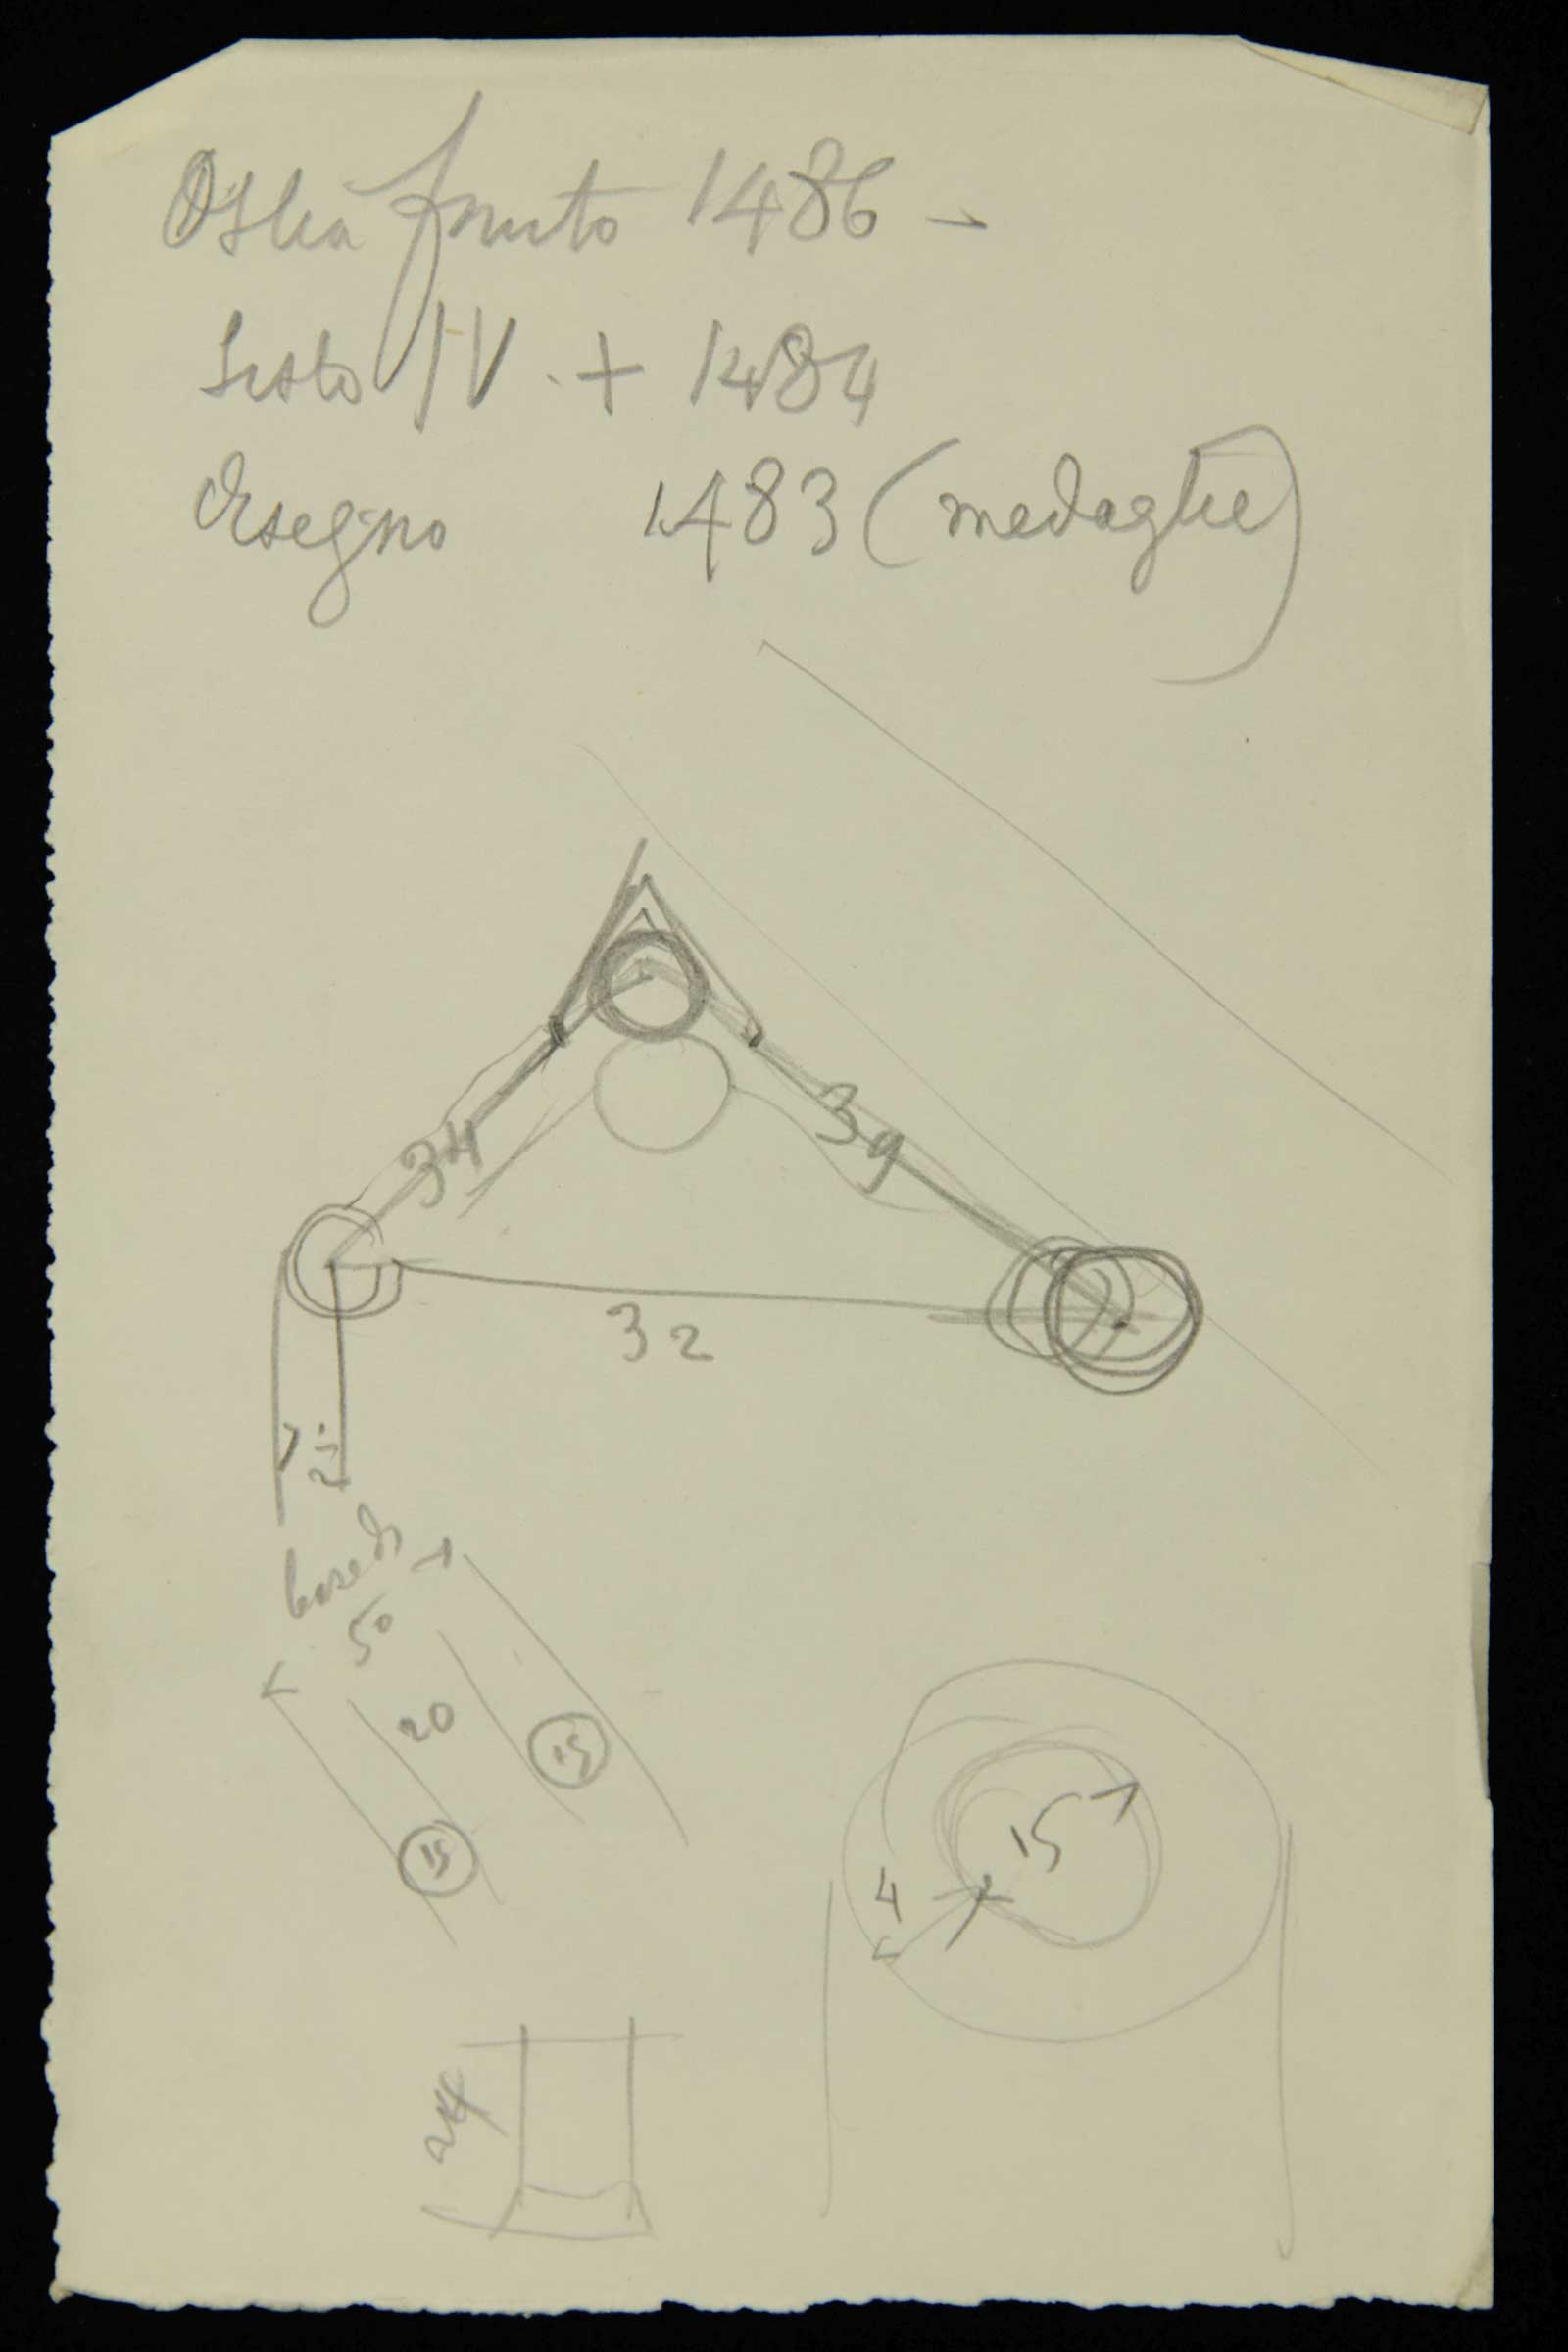 Ostia finito 1486 –
Sisto IV. + 1484
disegno 1483 (medaglie)
34
39
32
7 1/2
base di
50
20
15
15
15
4
24